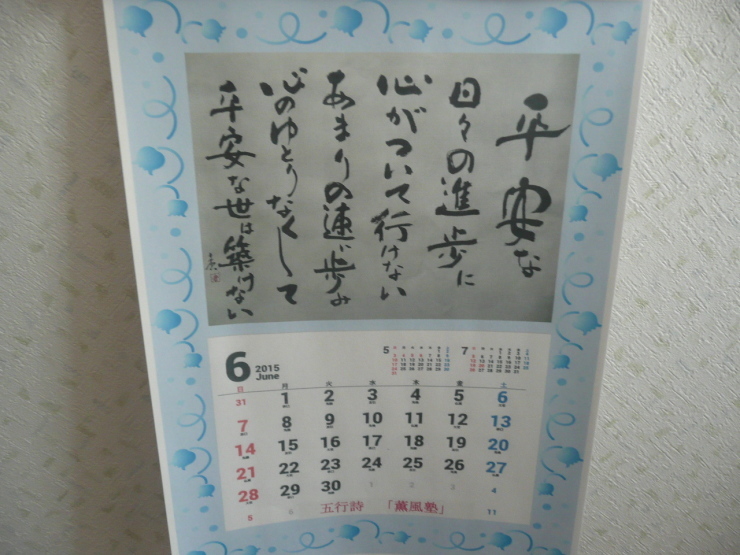 平安な
日々の進歩に
心がついて行けない
あまりの速い歩み
心のゆとりなくして
平安な世は築けない
6 2015 June
5
7
日 月 火 水 木 金 土
31 1 2 3 4 5 6
7 8 9 10 11 12 13
14 15 16 17 18 19 20
21 22 23 24 25 26 27
28 29 30 1 2 3 4
5 11
五行詩 「薫風塾」